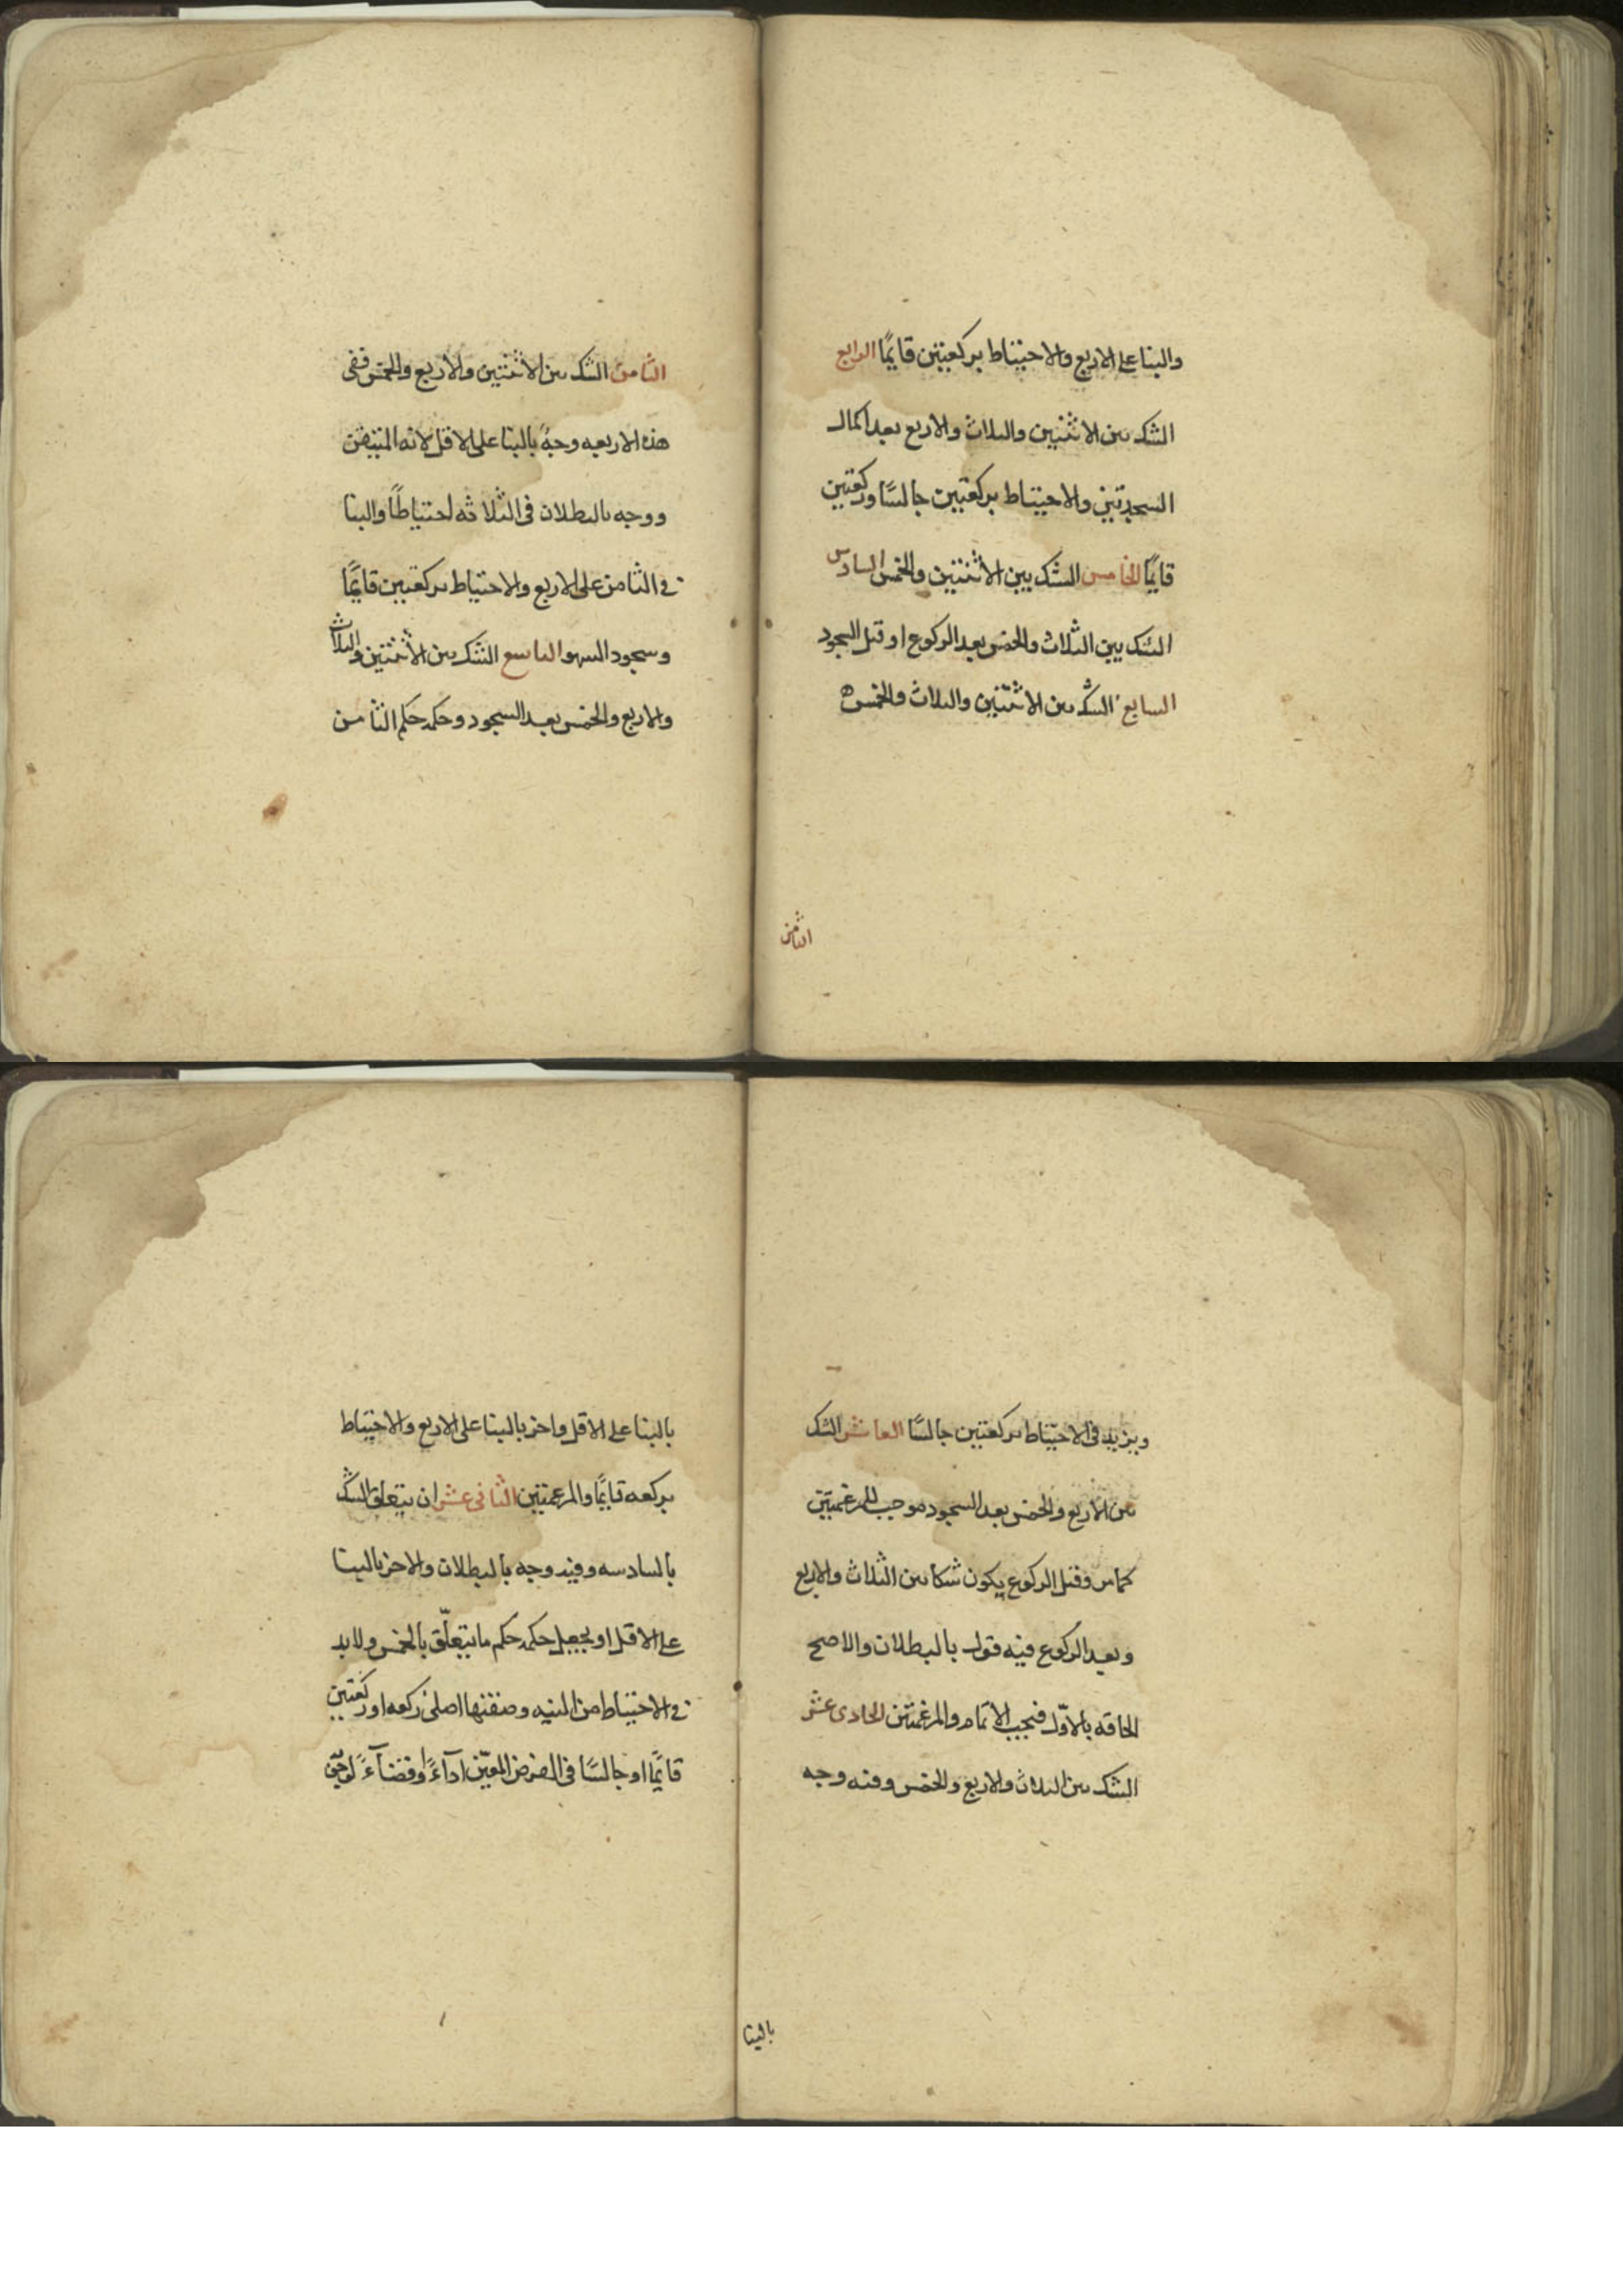 والبنا على الاربع والاحتياط بركعتين قايمًا الرابع
الشك بين الاثنتين والثلاث والاربع بعد اكمال
السجدتين والاحتياط بركعتين جالسًا وركعتين
قايمًا الخامس الشك بين الاثنتين والخمس السادس
الشك بين الثلاث والخمس بعد الركوع او قبل السجود
السابع الشك بين الاثنتين والثلاث والخمس
الثامن
الثامن الشك بين الاثنتين والاربع والخمس ففى
هذه الاربعه وجهٌ بالبنا على الاقل لانه المتيقن
ووجه بالبطلان فى الثلاثه احتياطًا والبنا
فى الثامن على الاربع والاحتياط بركعتين قايمًا
وسجود السهو التاسع الشك بين الاثنتين والثلاث
والاربع والخمس بعد السجود وحكمه حكم الثامن
ويزيد فى الاحتياط بركعتين جالسًا العاشر الشك
بين الاربع والخمس بعد السجود موجب للمرغمتين
كما مر وقبل الركوع يكون شكا بين الثلاث والاربع
وبعد الركوع فيه قول بالبطلان والاصح
الحاقه بالاوّل فيجب الاتمام والمرغمتين الحادى عشر
الشك بين الثلاث والاربع والخمس وفيه وجه
بالبنا
بالبنا على الاقل واخر بالبنا على الاربع والاحتياط
بركعه قايمًا والمرغمتين الثانى عشر ان يتعلق الشك
بالسادسه وفيه وجه بالبطلان والاخر بالبنا
على الاقل او يجعل حكمه حكم ما يتعلّق بالخمس ولا بد
فى الاحتياط من النيه وصفتها اصلى ركعه او ركعتين
قايمًا او جالسًا فى الفرض المعيّن اداءً او قضاءً لوجوبه